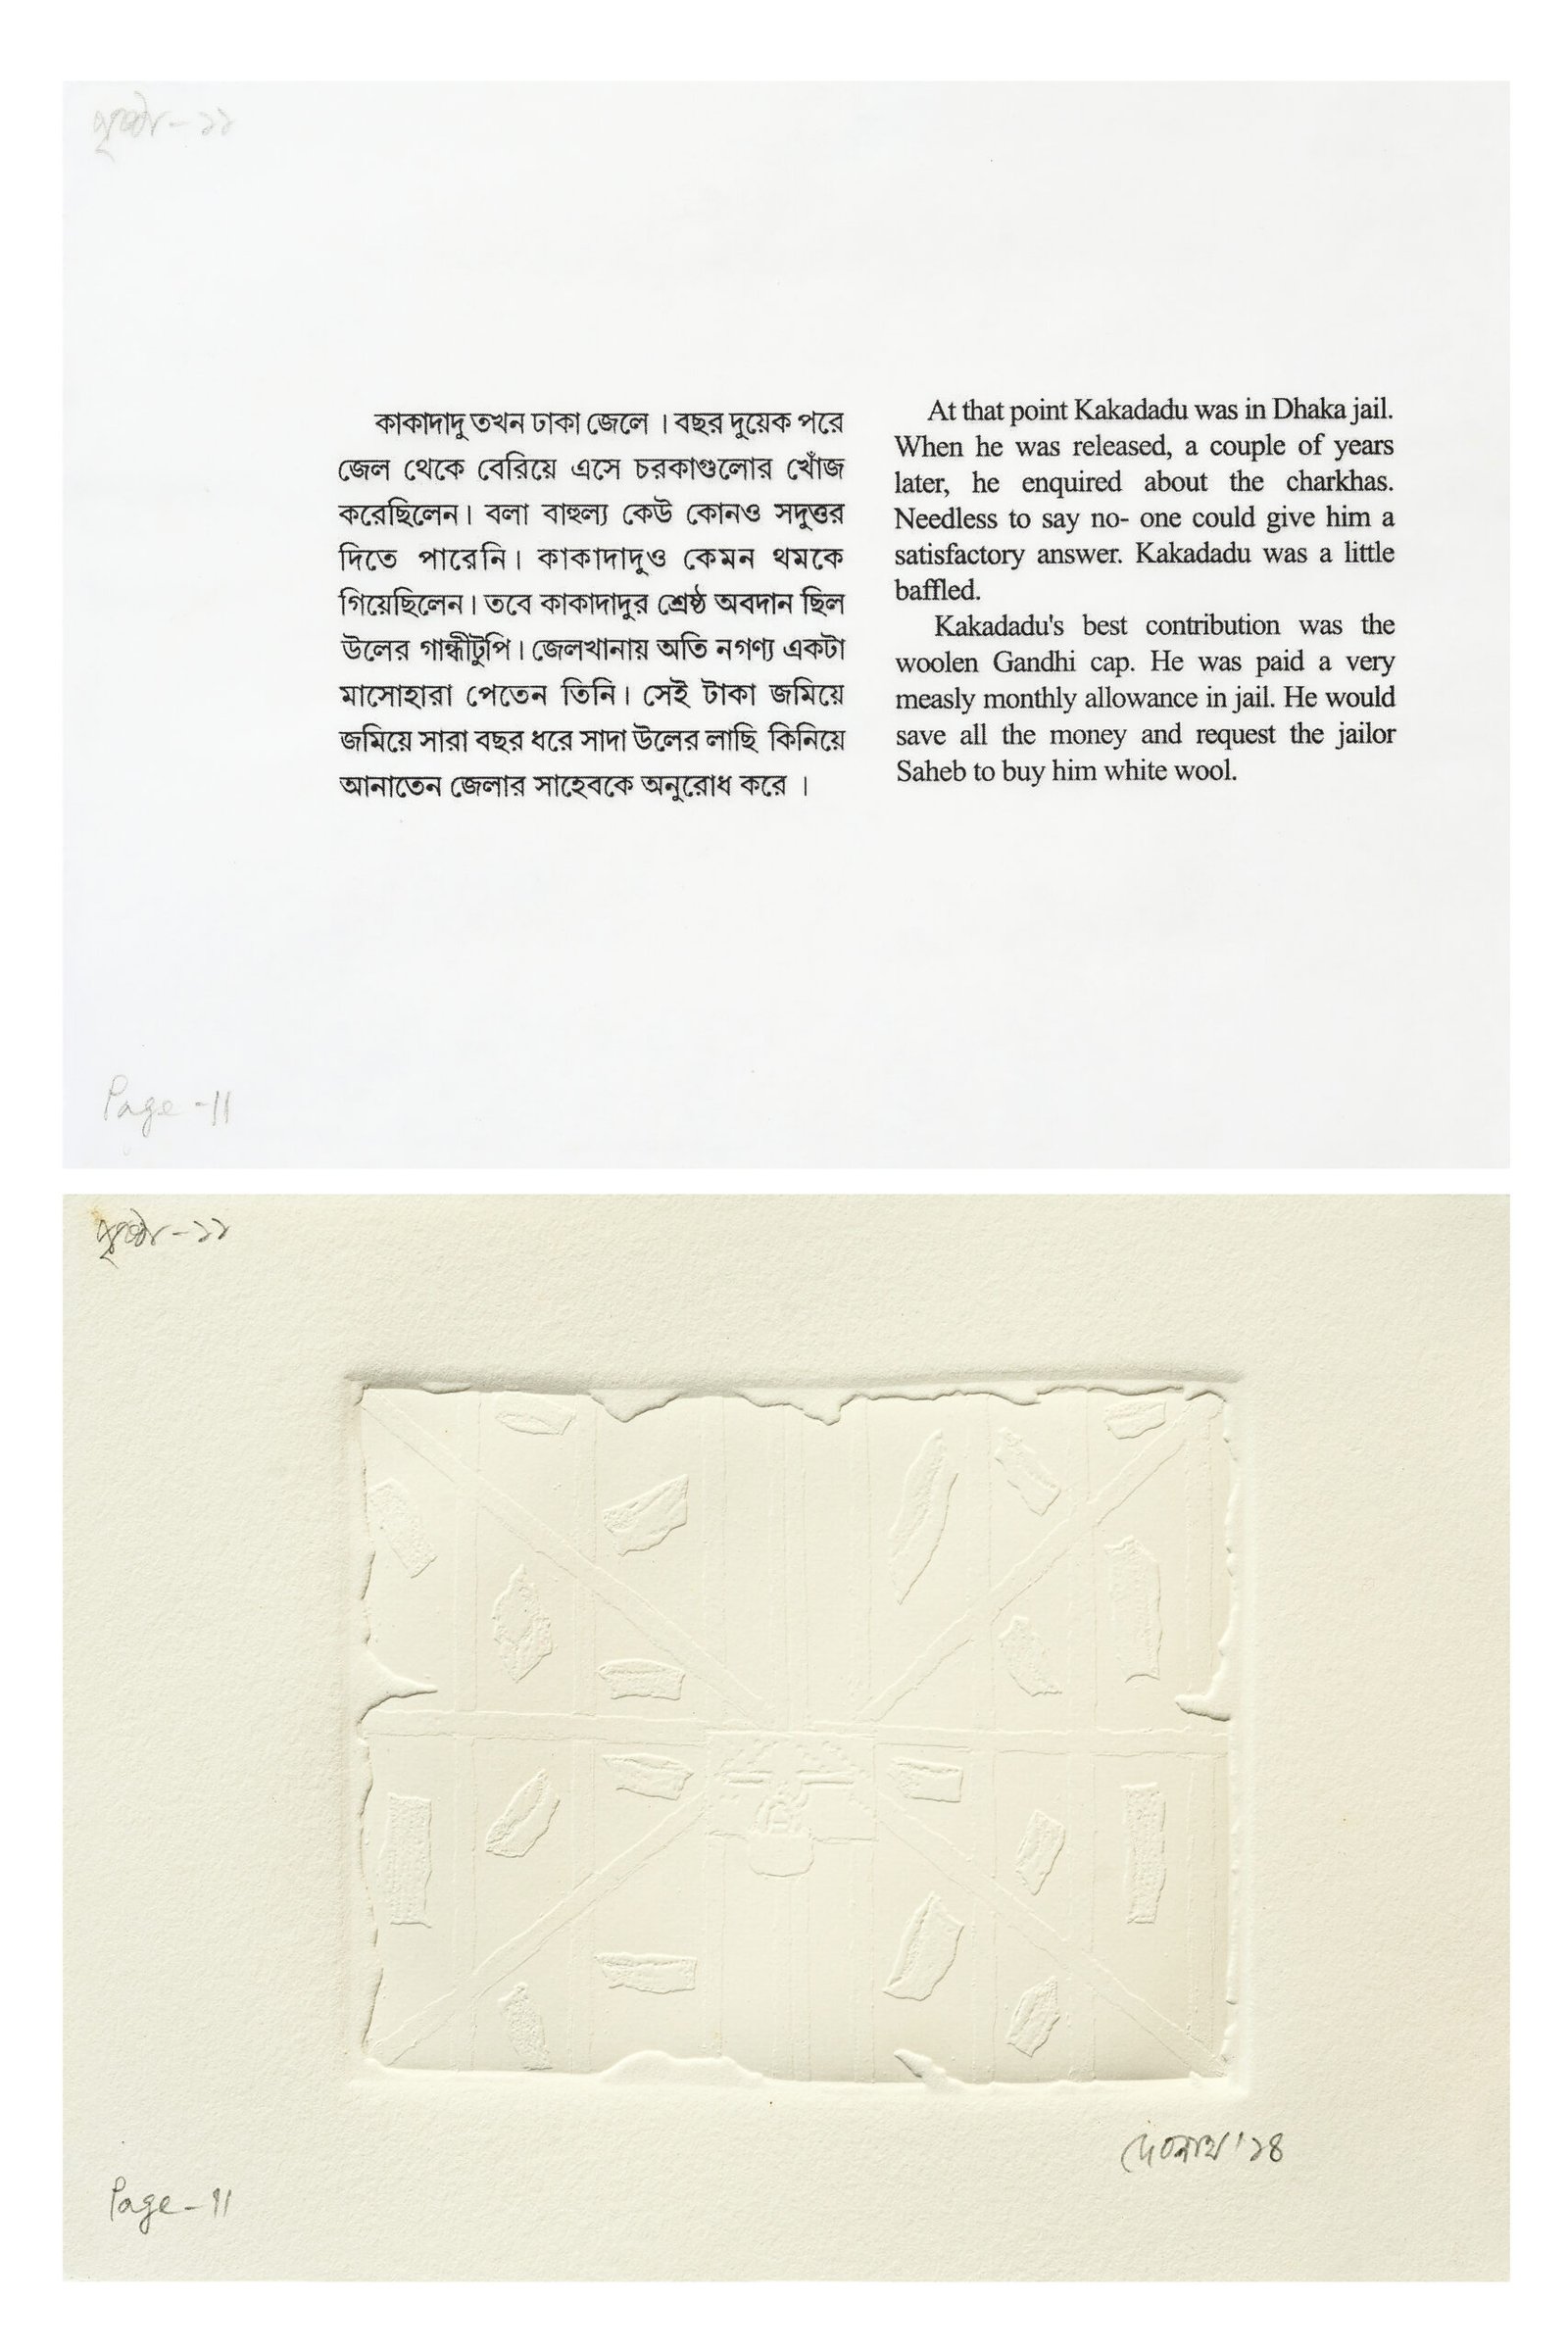 পৃষ্ঠা - ১১
কাকাদাদু তখন ঢাকা জেলে । বছর দুয়েক পরে
জেল থেকে বেরিয়ে এসে চরকাগুলোর খোঁজ
করেছিলেন। বলা বাহুল্য কেউ কোনও সদুত্তর
দিতে পারেনি। কাকাদাদুও কেমন থমকে
গিয়েছিলেন। তবে কাকাদাদুর শ্রেষ্ঠ অবদান ছিল
উলের গান্ধীটুপি। জেলখানায় অতি নগণ্য একটা
মাসোহারা পেতেন তিনি। সেই টাকা জমিয়ে
জমিয়ে সারা বছর ধরে সাদা উলের লাছি কিনিয়ে
আনাতেন জেলার সাহেবকে অনুরোধ করে ।
At that point Kakadadu was in Dhaka jail.
When he was released, a couple of years
later, he enquired about the charkhas.
Needless to say no- one could give him a
satisfactory answer. Kakadadu was a little
baffled.
Kakadadu's best contribution was the
woolen Gandhi cap. He was paid a very
measly monthly allowance in jail. He would
save all the money and request the jailor
Saheb to buy him white wool.
Page -11
পৃষ্ঠা - ১১
দেবনাথ '১৪
Page - 11